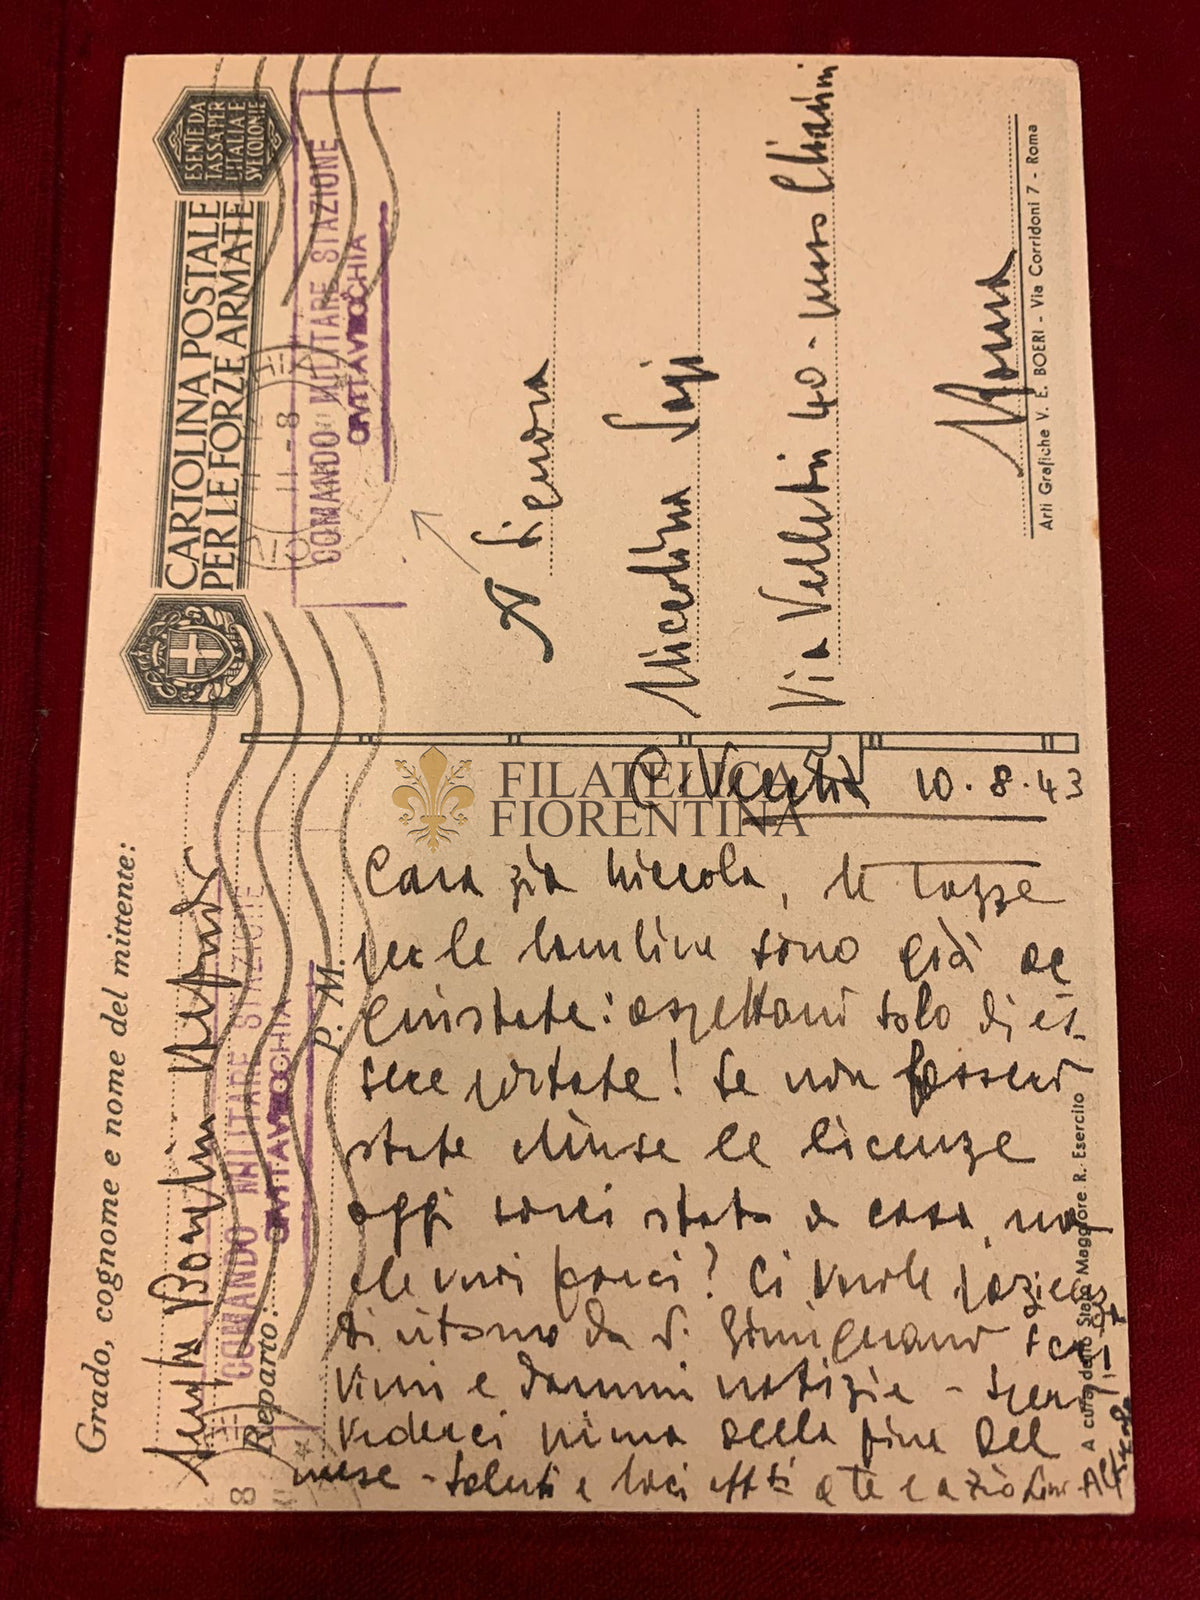 Grado, cognome e nome del mittente:
Reparto:
P. M.
COMANDO MILITARE STAZIONE
CIVITAVECCHIA
C. Vecchia 10.8.43
Cara zia Niccola, le tazze
per le bambine sono già ac
quistate: aspettano solo di es
sere portate! Se non fossero
state chiuse le licenze
oggi sarei stato a casa, ma
che vuoi farci? Ci vuole pazienza
Di ritorno da S. Gimignano scri
vimi e dammi notizie - Spero
vederci prima della fine del
mese - Saluti e baci a te e a zio
CARTOLINA POSTALE
PER LE FORZE ARMATE
ESENTE DA
TASSA PER
L'ITALIA E
SVE COLONIE
11-8
COMANDO MILITARE STAZIONE
CIVITAVECCHIA
A Signora
Niccolina
Via Velletri 40 -
Roma
Arti Grafiche V. E. BOERI - Via Corridoni 7 - Roma
A cura dello Stato Maggiore R. Esercito
FILATELICA
FIORENTINA